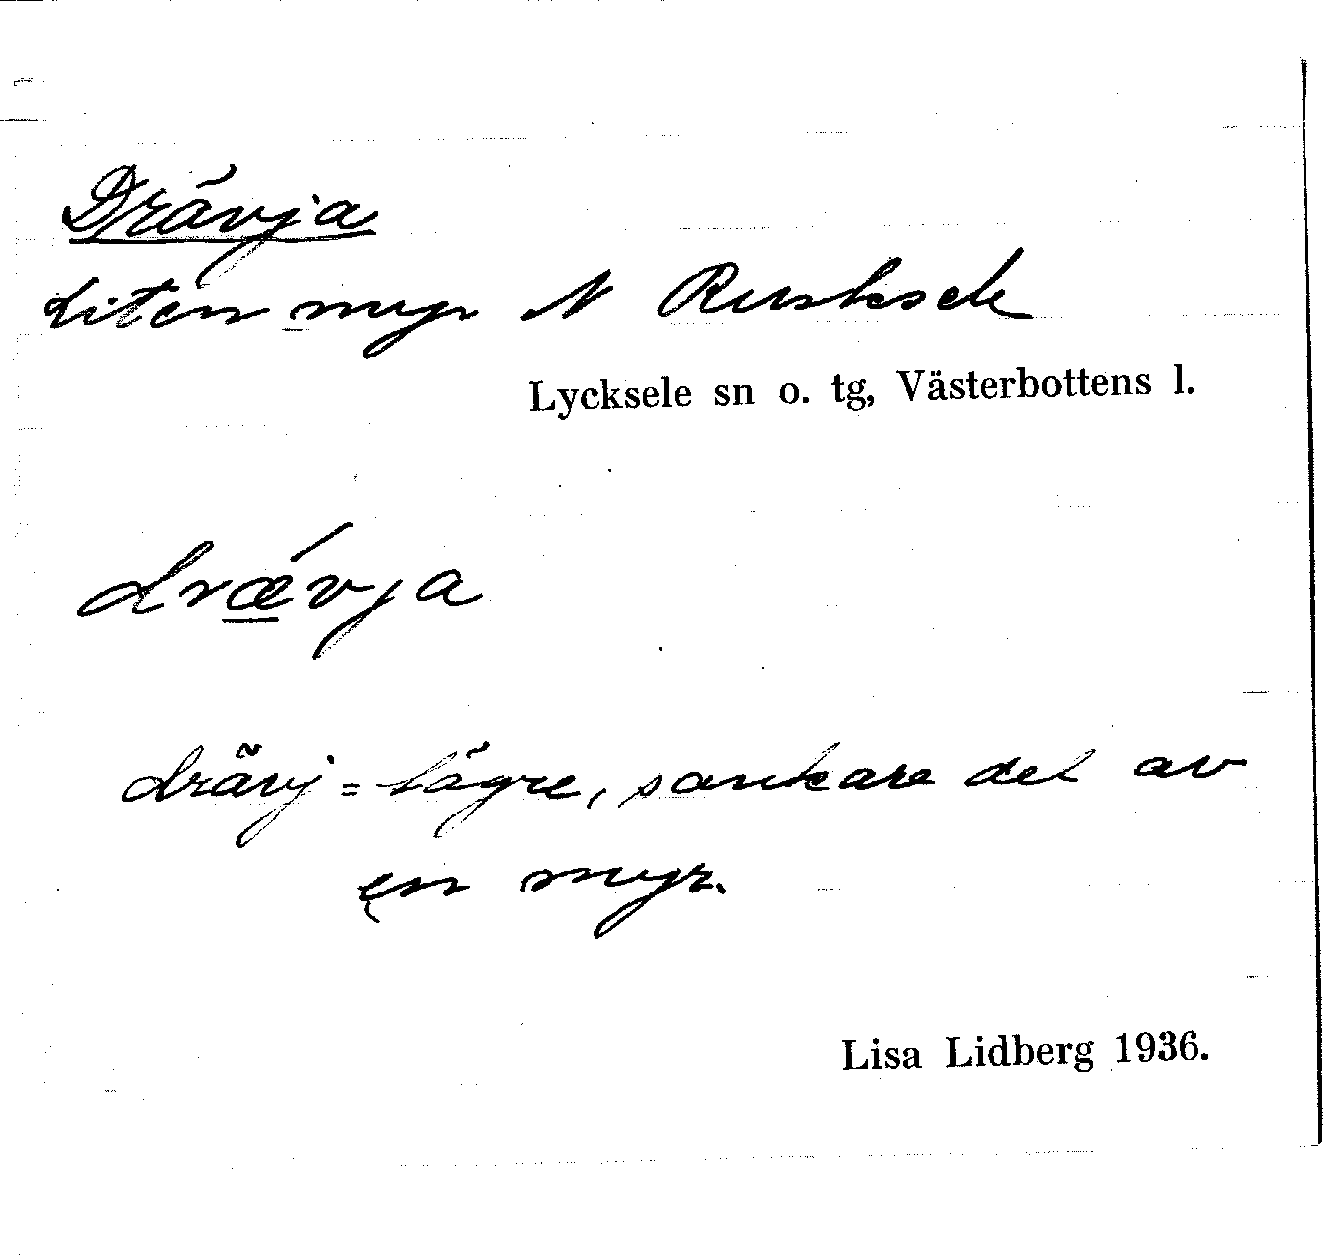 Drävja
Liten myr N Rusksele
Lycksele sn o. tg, Västerbottens l.
drǽvja
drävj = lägre, sankare del av
en myr.
Lisa Lidberg 1936.